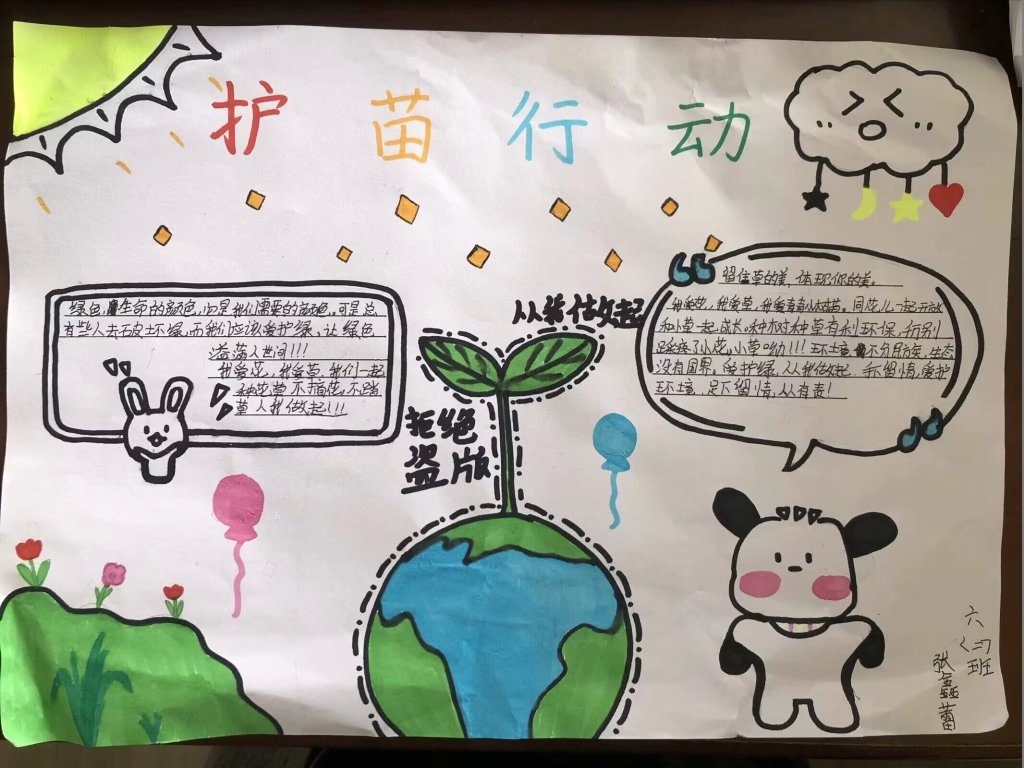 护苗行动
绿色,是生命的颜色,也是我们需要的颜色。可是总
有些人去破坏绿,而我们应该爱护绿,让绿色
洒落人世间!!!
我爱花,我爱草,我们一起
种花草不摘花,不踏
草人我做起!!!
从我做起
拒绝
盗版
留住草的美,体现你的美。
我爱花,我爱草,我爱青青小树苗。同花儿一起开放
和小草一起成长,种树种草有利环保,行别
踩疼了小花,小草呦!!!环境不分月族,生态
没有国界,爱护绿,从我做起,手留情,爱护
环境,足下留情,从有责!
六
(三)
班
张鑫蕾